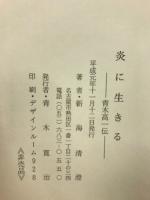 炎に生きる
――青木高一伝――
平成元年十一月十二日発行
著者・新海清澄
発行者・青木寛治
印刷・デザインルーム928
〈非売品〉